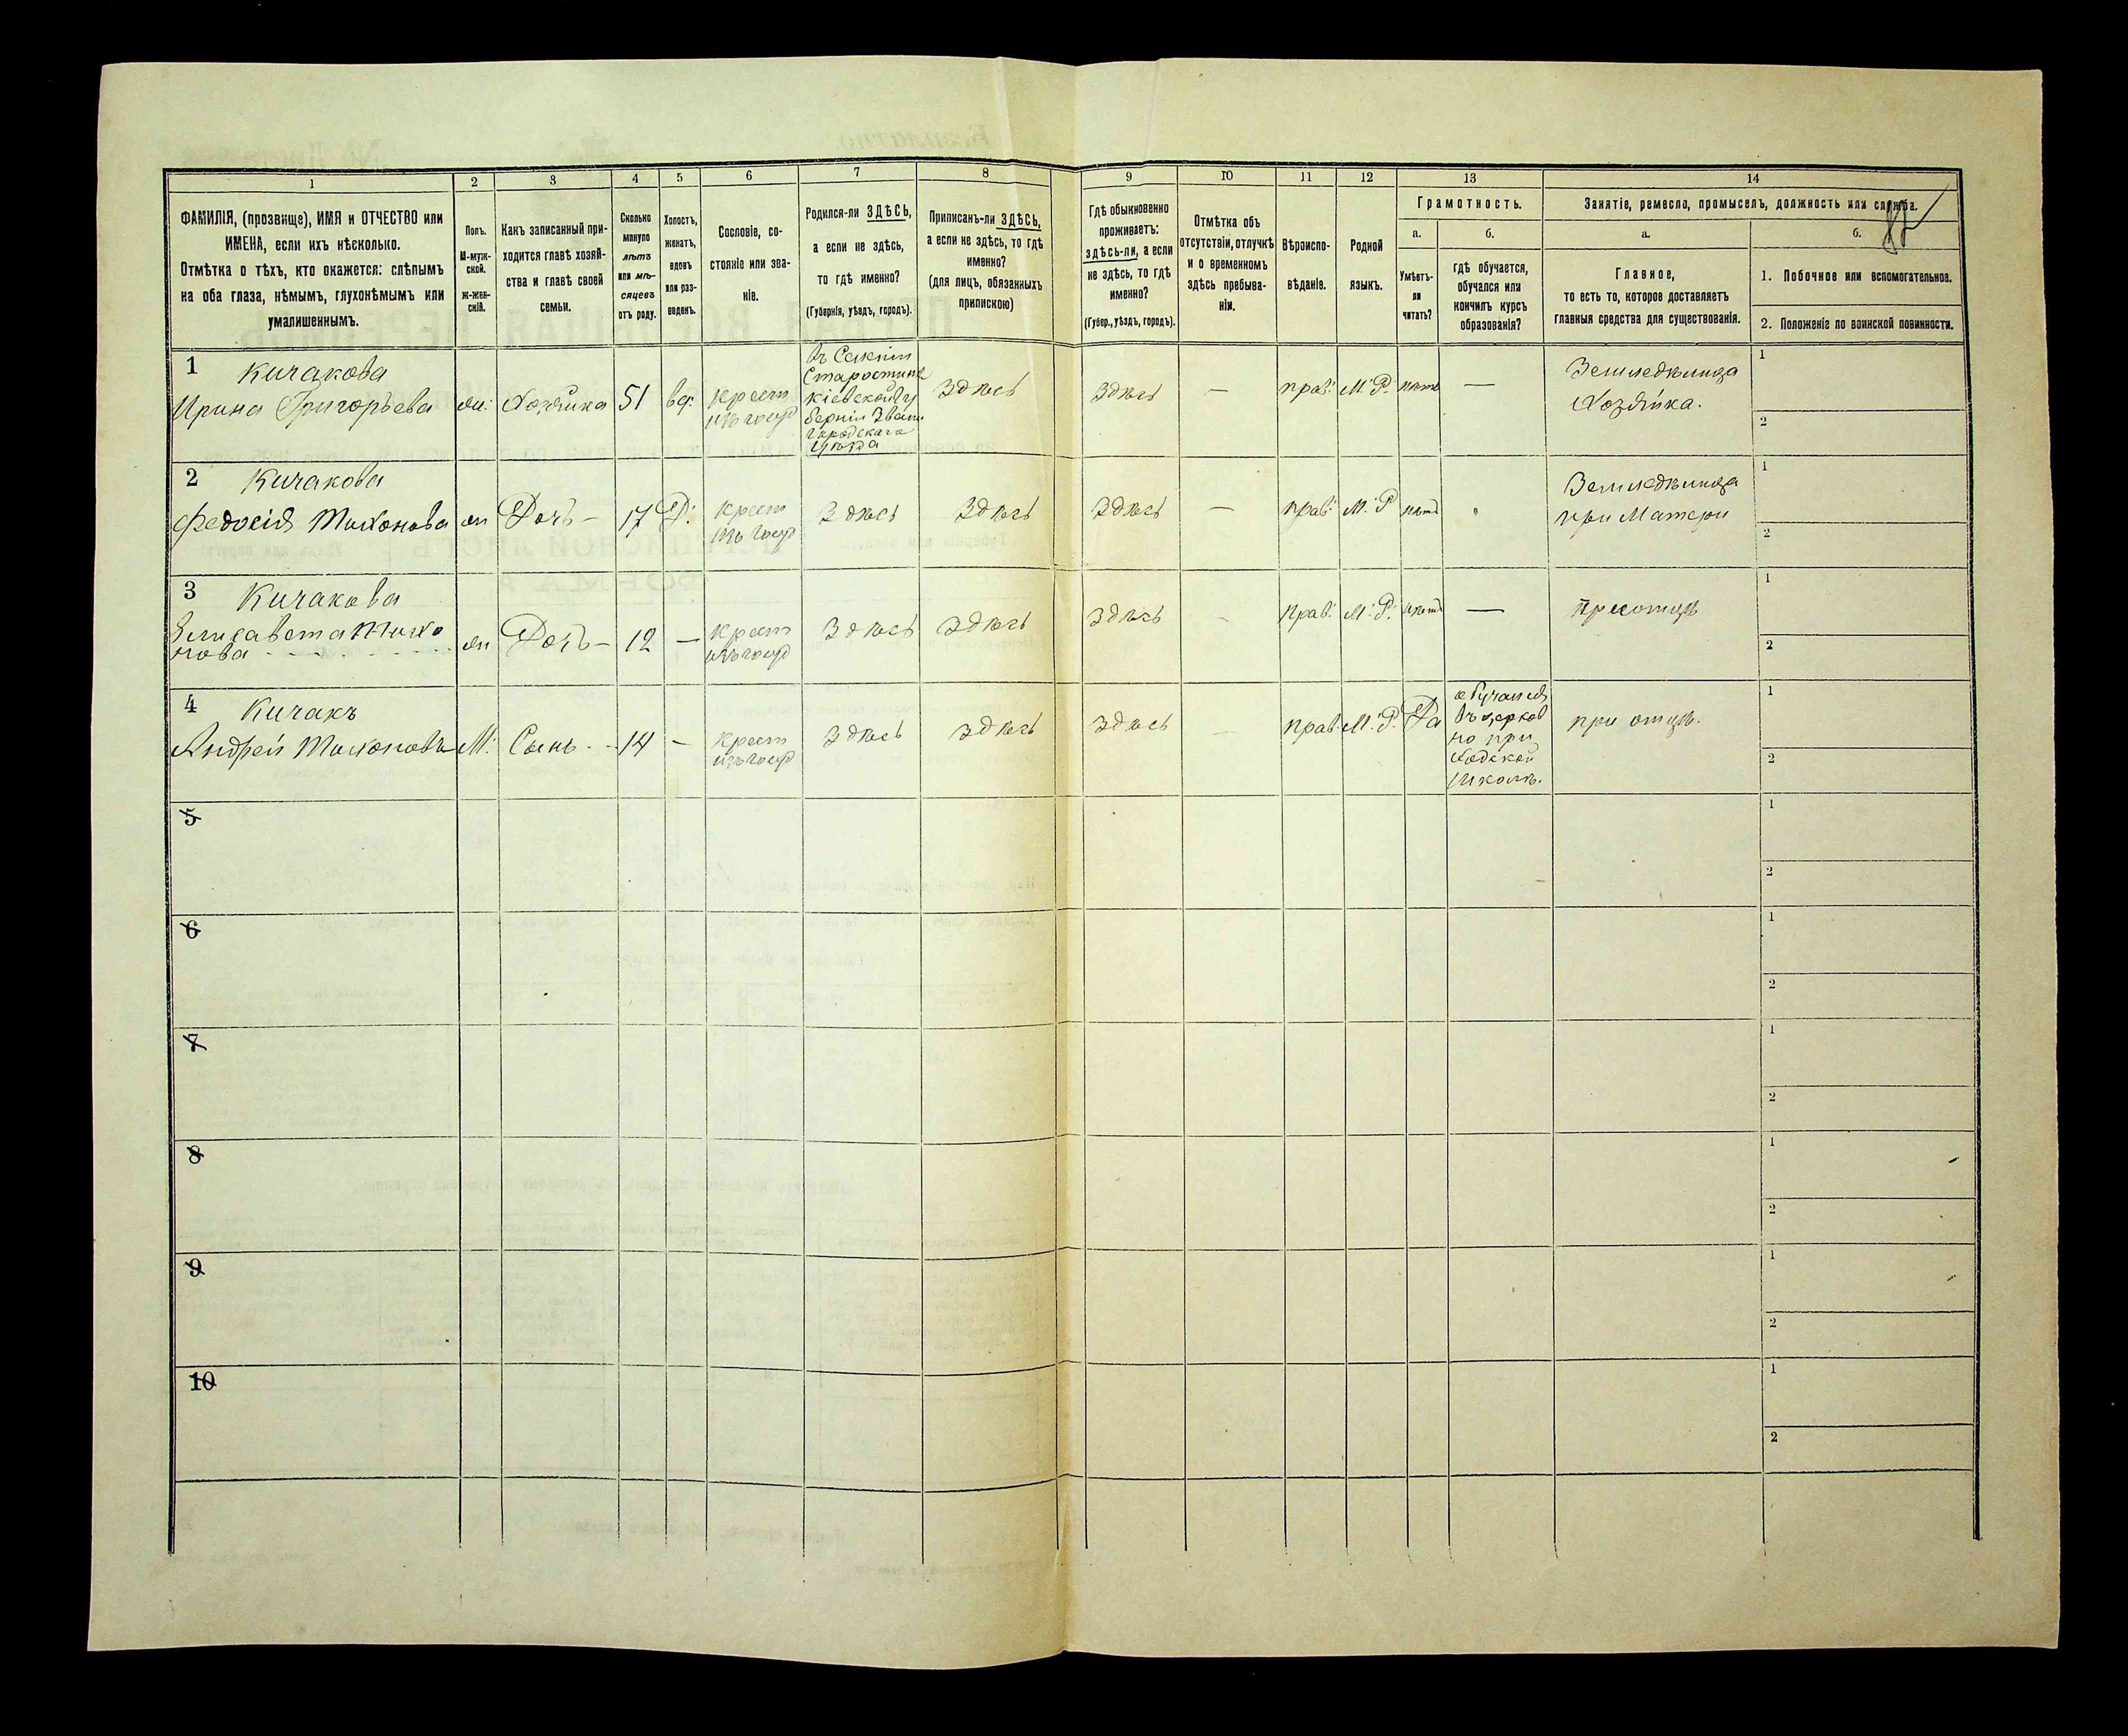 1 2 3 4 5 6 7 8 9 10 11 12 13 14
ФАМИЛІЯ, (прозвище), ИМЯ и ОТЧЕСТВО или
ИМЕНА, если ихъ нѣсколько.
Отмѣтка о тѣхъ, кто окажется: слѣпымъ
на оба глаза, нѣмымъ, глухонѣмымъ или
умалишеннымъ.
Полъ.
М-муж-
ской.
Ж-жен-
скій.
Какъ записанный при-
ходится главѣ хозяй-
ства и главѣ своей
семьи.
Сколько
минуло
лѣтъ
или мѣ-
сяцевъ
отъ роду.
Холостъ,
женатъ,
вдовъ
или раз-
веденъ.
Сословіе, со-
стояніе или зва-
ніе.
Родился-ли ЗДѢСЬ,
а если не здѣсь,
то гдѣ именно?
(Губернія, уѣздъ, городъ).
Приписанъ-ли ЗДѢСЬ,
а если не здѣсь, то гдѣ
именно?
(для лицъ, обязанныхъ
припискою)
Гдѣ обыкновенно
проживаетъ:
здѣсь-ли, а если
не здѣсь, то гдѣ
именно?
(Губер., уѣздъ, городъ).
Отмѣтка объ
отсутствіи, отлучкѣ
и о временномъ
здѣсь пребыва-
ніи.
Вѣроиспо-
вѣданіе.
Родной
языкъ.
Грамотность.
а.
Умѣетъ-
ли
читать?
б.
гдѣ обучается,
обучался или
кончилъ курсъ
образованія?
Занятіе, ремесло, промыселъ, должность или служба.
а.
Главное,
то есть то, которое доставляетъ
главныя средства для существованія.
б.
1. Побочное или вспомогательное.
2. Положеніе по воинской повинности.
1 Кичакова
Ирина Григорьева
жн:
Хозяйка
51
вд:
крест
изъ госуд
Въ Селеніи
Кіевской гу
берніи Звени
городскаго
уѣзда
Здѣсь
Здѣсь
—
прав:
М. Р.
нѣтъ
—
Земледѣлица
Хозяйка.
1
2
2 Кичакова
Федосія Тихонова
жн
Дочь —
17
Д:
крест
изъ госуд
Здѣсь
Здѣсь
Здѣсь
—
прав:
М. Р
нѣтъ
Земледѣлица
при Матери
1
2
3 Кичакова
Елисавета Тихо
нова
жн
Дочь —
12
—
крест
изъ госуд
Здѣсь
Здѣсь
Здѣсь
прав:
М. Р.
нѣтъ
—
при отцѣ
1
2
4 Кичакъ
Андрей Тихоновъ
М:
Сынъ
14
—
крест
изъ госуд
Здѣсь
Здѣсь
Здѣсь
прав
М. Р.
Да
обучался
въ церков
но при
ходской
школѣ.
при отцѣ.
1
2
5
1
2
6
1
2
7
1
2
8
1
2
9
1
2
10
1
2